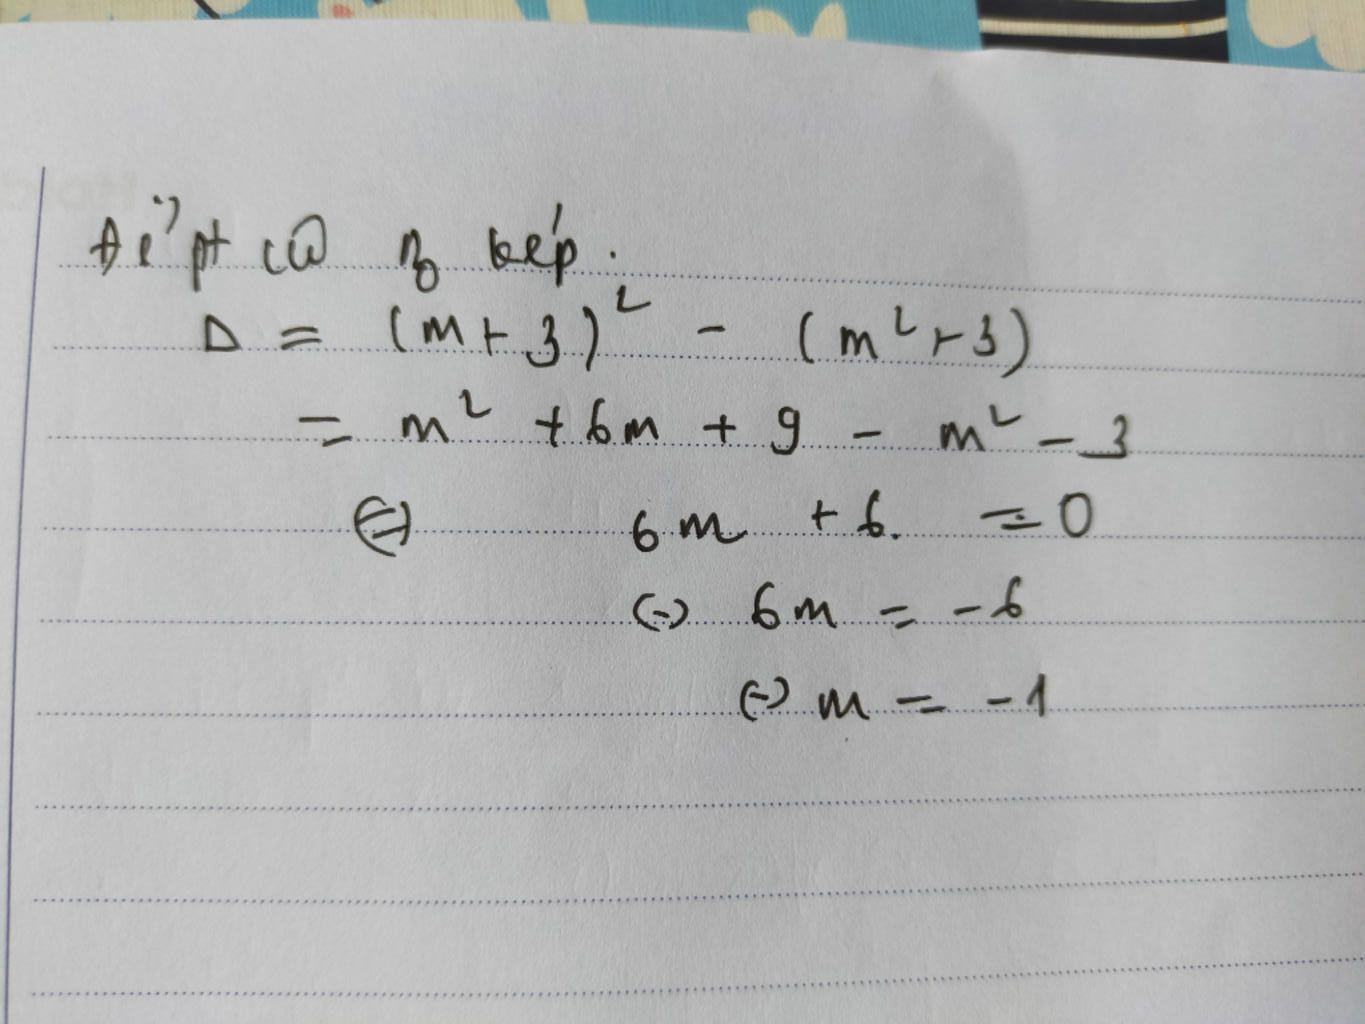 Để pt có no kép.
Δ = (m+3)² - (m²+3)
= m² + 6m + 9 - m² - 3
⇔ 6m + 6. = 0
⇔ 6m = -6
⇔ m = -1